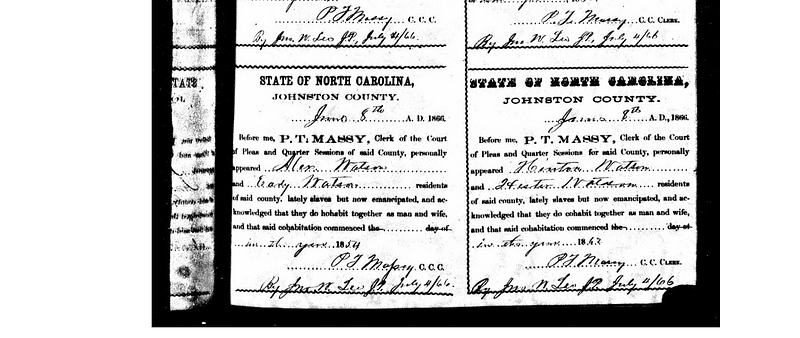 P T Massy C. C. C.
By Jno. W. Leo J.P. July 4/66.
STATE OF NORTH CAROLINA,
JOHNSTON COUNTY.
June 8th A. D. 1866.
Before me, P. T. MASSY, Clerk of the Court
of Pleas and Quarter Sessions of said County, personally
appeared Alex Watson
and Eady Watson residents
of said county, lately slaves but now emancipated, and ac-
knowledged that they do hohabit together as man and wife,
and that said cohabitation commenced the day of
in the year 1854
P T Massy C. C. C.
By Jno. W. Leo J.P. July 4/66.
P. T. Massy C. C. CLERK.
By Jno. W. Leo J.P. July 4/66
STATE OF NORTH CAROLINA,
JOHNSTON COUNTY.
June 8th A. D., 1866.
Before me, P. T. MASSY, Clerk of the Court
of Pleas and Quarter Sessions for said County, personally
appeared Watson
and Hester Watson residents
of said county, lately slaves but now emancipated, and ac-
knowledged that they do cohabit together as man and wife,
and that said cohabitation commenced the day of
in the year 1862
P T Massy C. C. CLERK.
By Jno. W. Leo J.P. July 4/66